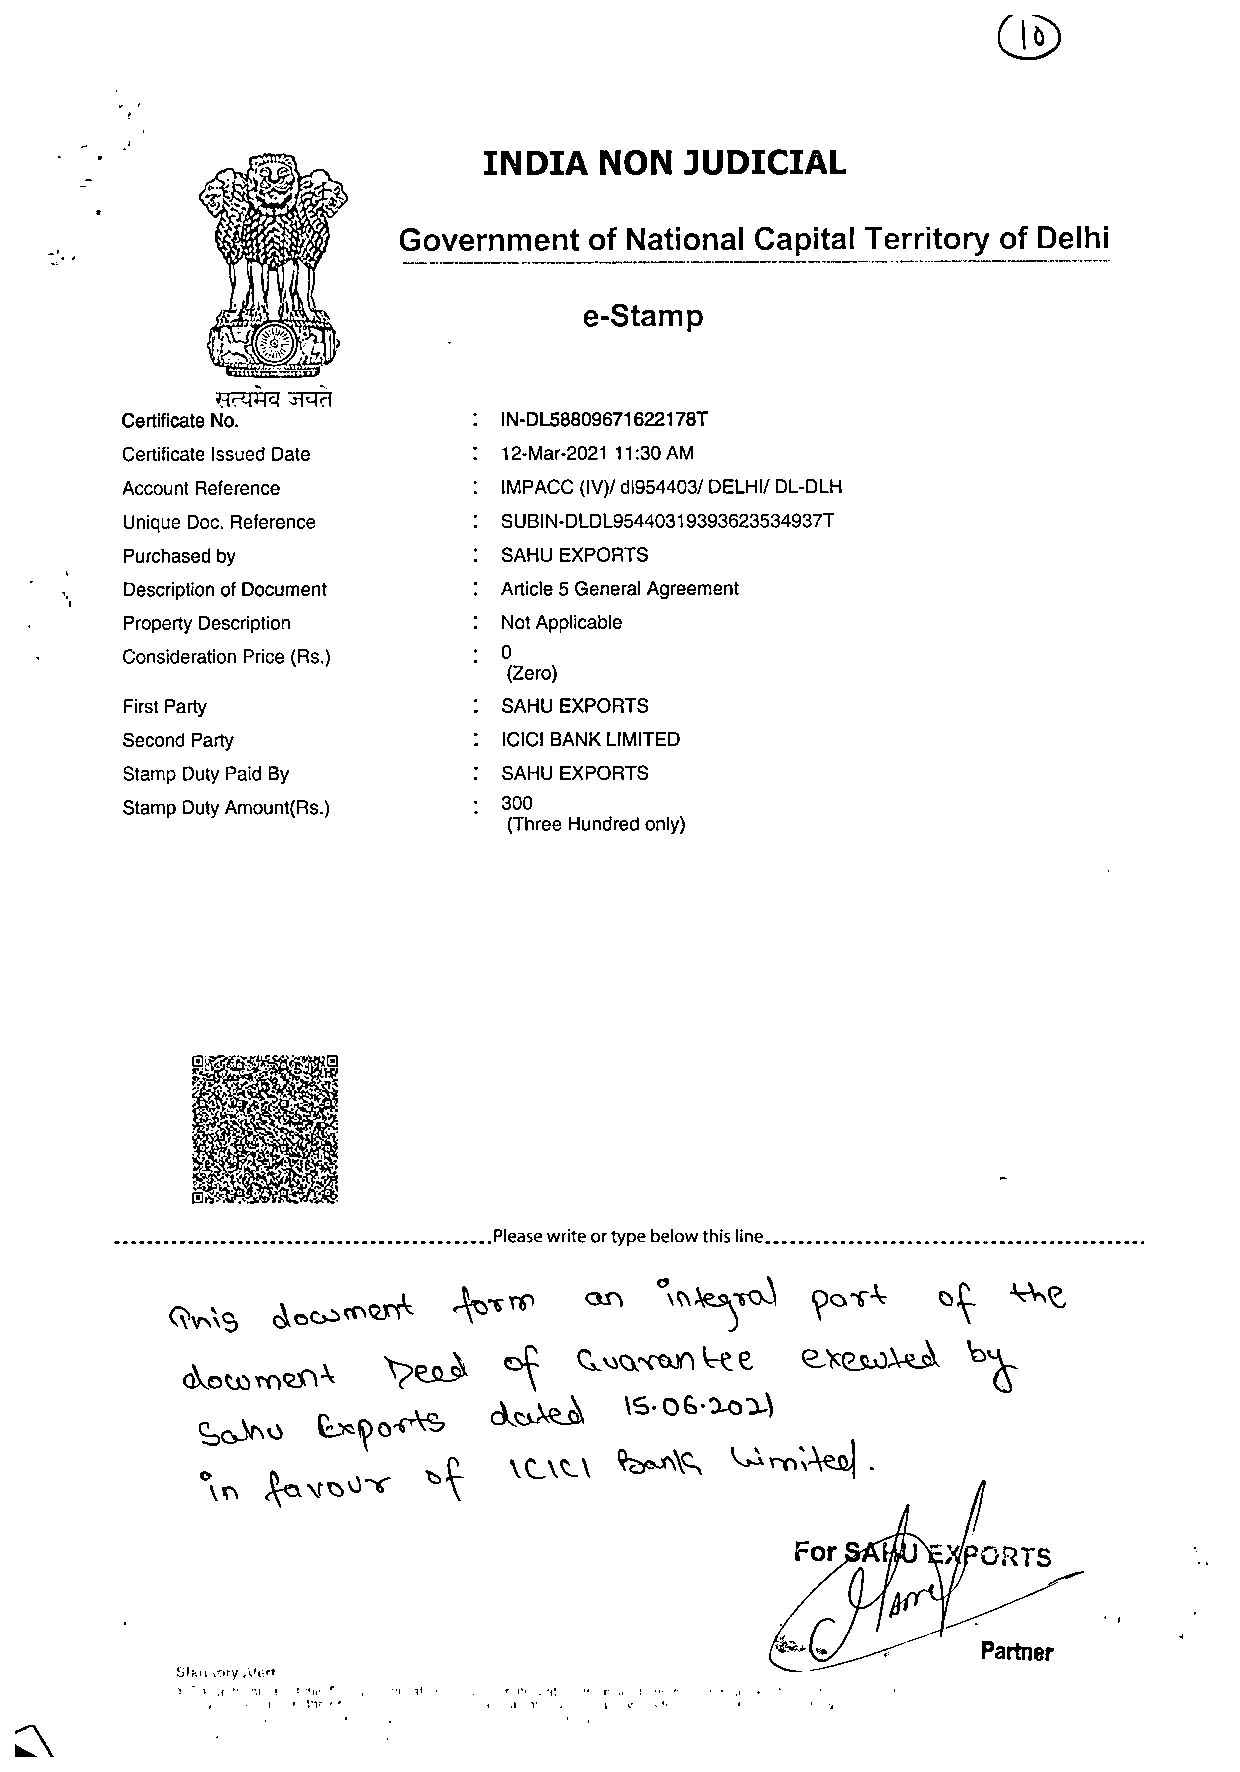 10
INDIA NON JUDICIAL
Government of National Capital Territory of Delhi
e-Stamp
सत्यमेव जयते
Certificate No. : IN-DL58809671622178T
Certificate Issued Date : 12-Mar-2021 11:30 AM
Account Reference : IMPACC (IV)/ dl954403/ DELHI/ DL-DLH
Unique Doc. Reference : SUBIN-DLDL95440319393623534937T
Purchased by : SAHU EXPORTS
Description of Document : Article 5 General Agreement
Property Description : Not Applicable
Consideration Price (Rs.) : 0
(Zero)
First Party : SAHU EXPORTS
Second Party : ICICI BANK LIMITED
Stamp Duty Paid By : SAHU EXPORTS
Stamp Duty Amount(Rs.) : 300
(Three Hundred only)
Please write or type below this line
This document form an integral part of the
document Deed of Guarantee executed by
Sahu Exports dated 15.06.2021
in favour of ICICI Bank Limited.
For SAHU EXPORTS
Partner